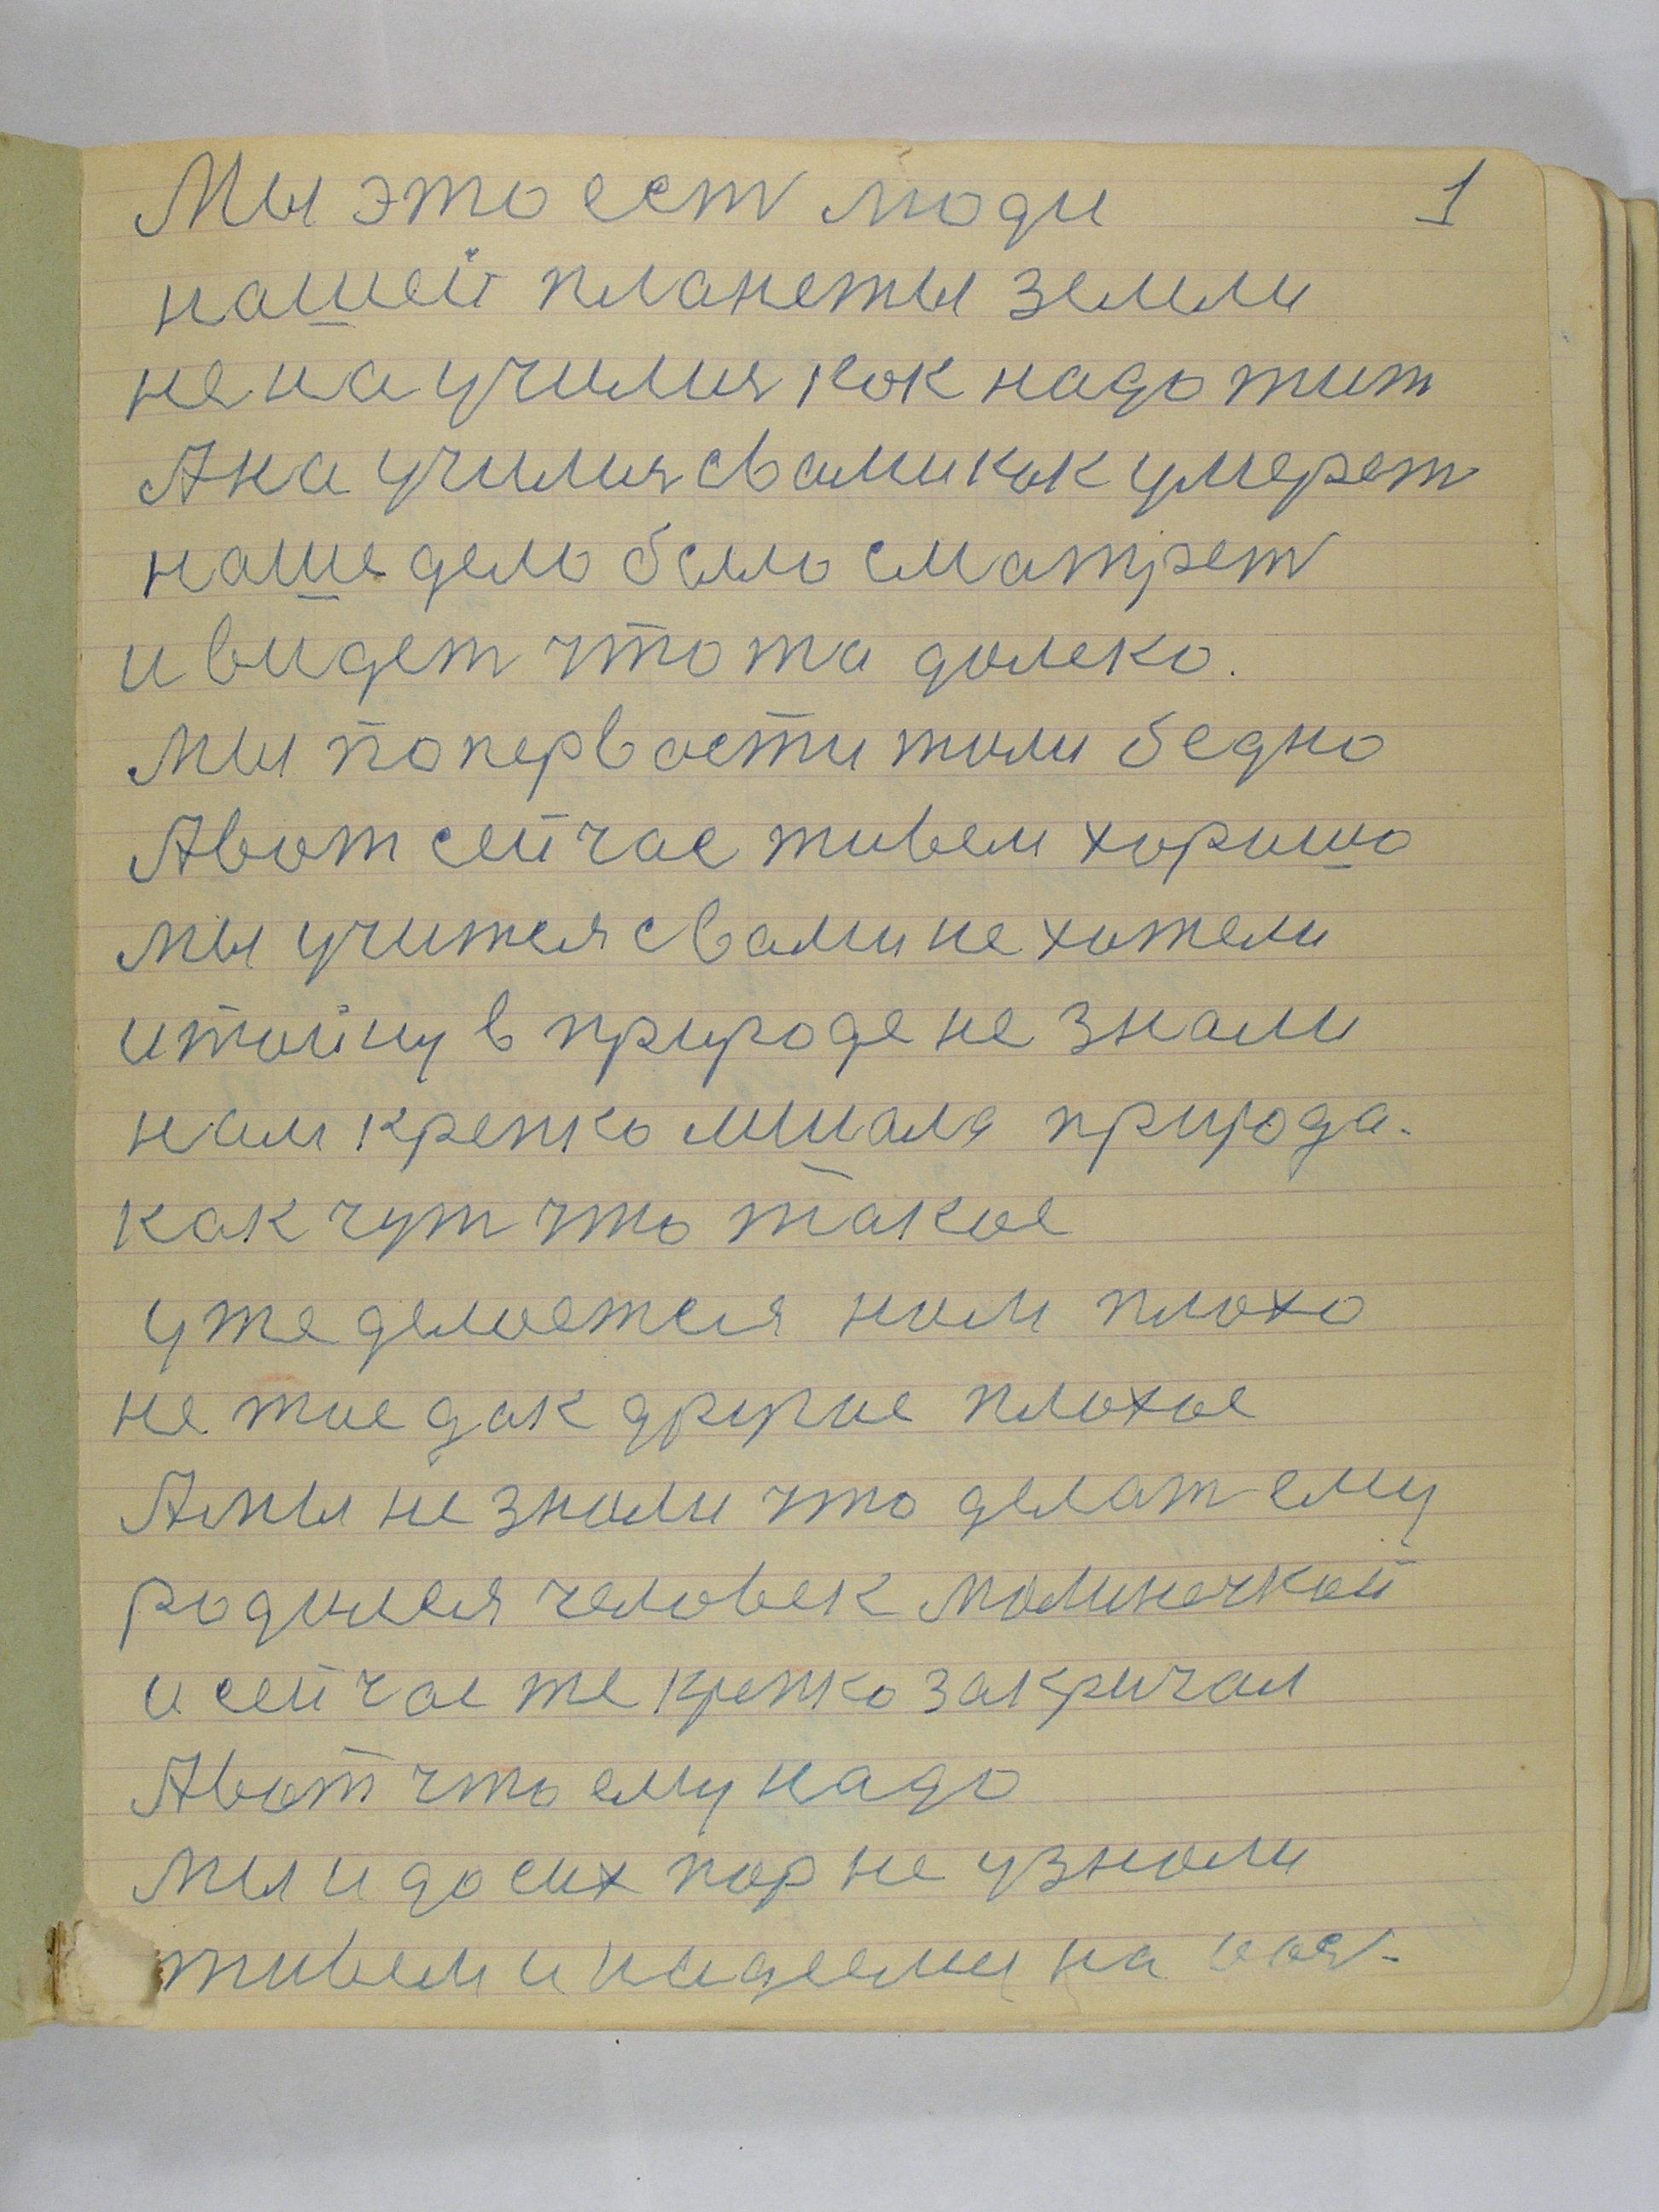 Мы это ест люди 1
нашей планеты земли
не на училися как надо жит
А на училися с вами как умерет
наше дело было сматрет
и видет что та далеко.
мы по первасти жили бедно
А вот сейчас живем хорошо
мы учится с вами не хотели
и тайну в природе не знали
нам крепко мишала природа.
как чут что такое
уже делается нам плохо
не тое дак другое плохое
А мы не знали что делат ему
родился человек малинечкай
и сейчас же крепко закричал
А вот что ему надо
мы и до сих пор не узнали
живем и надеемся на